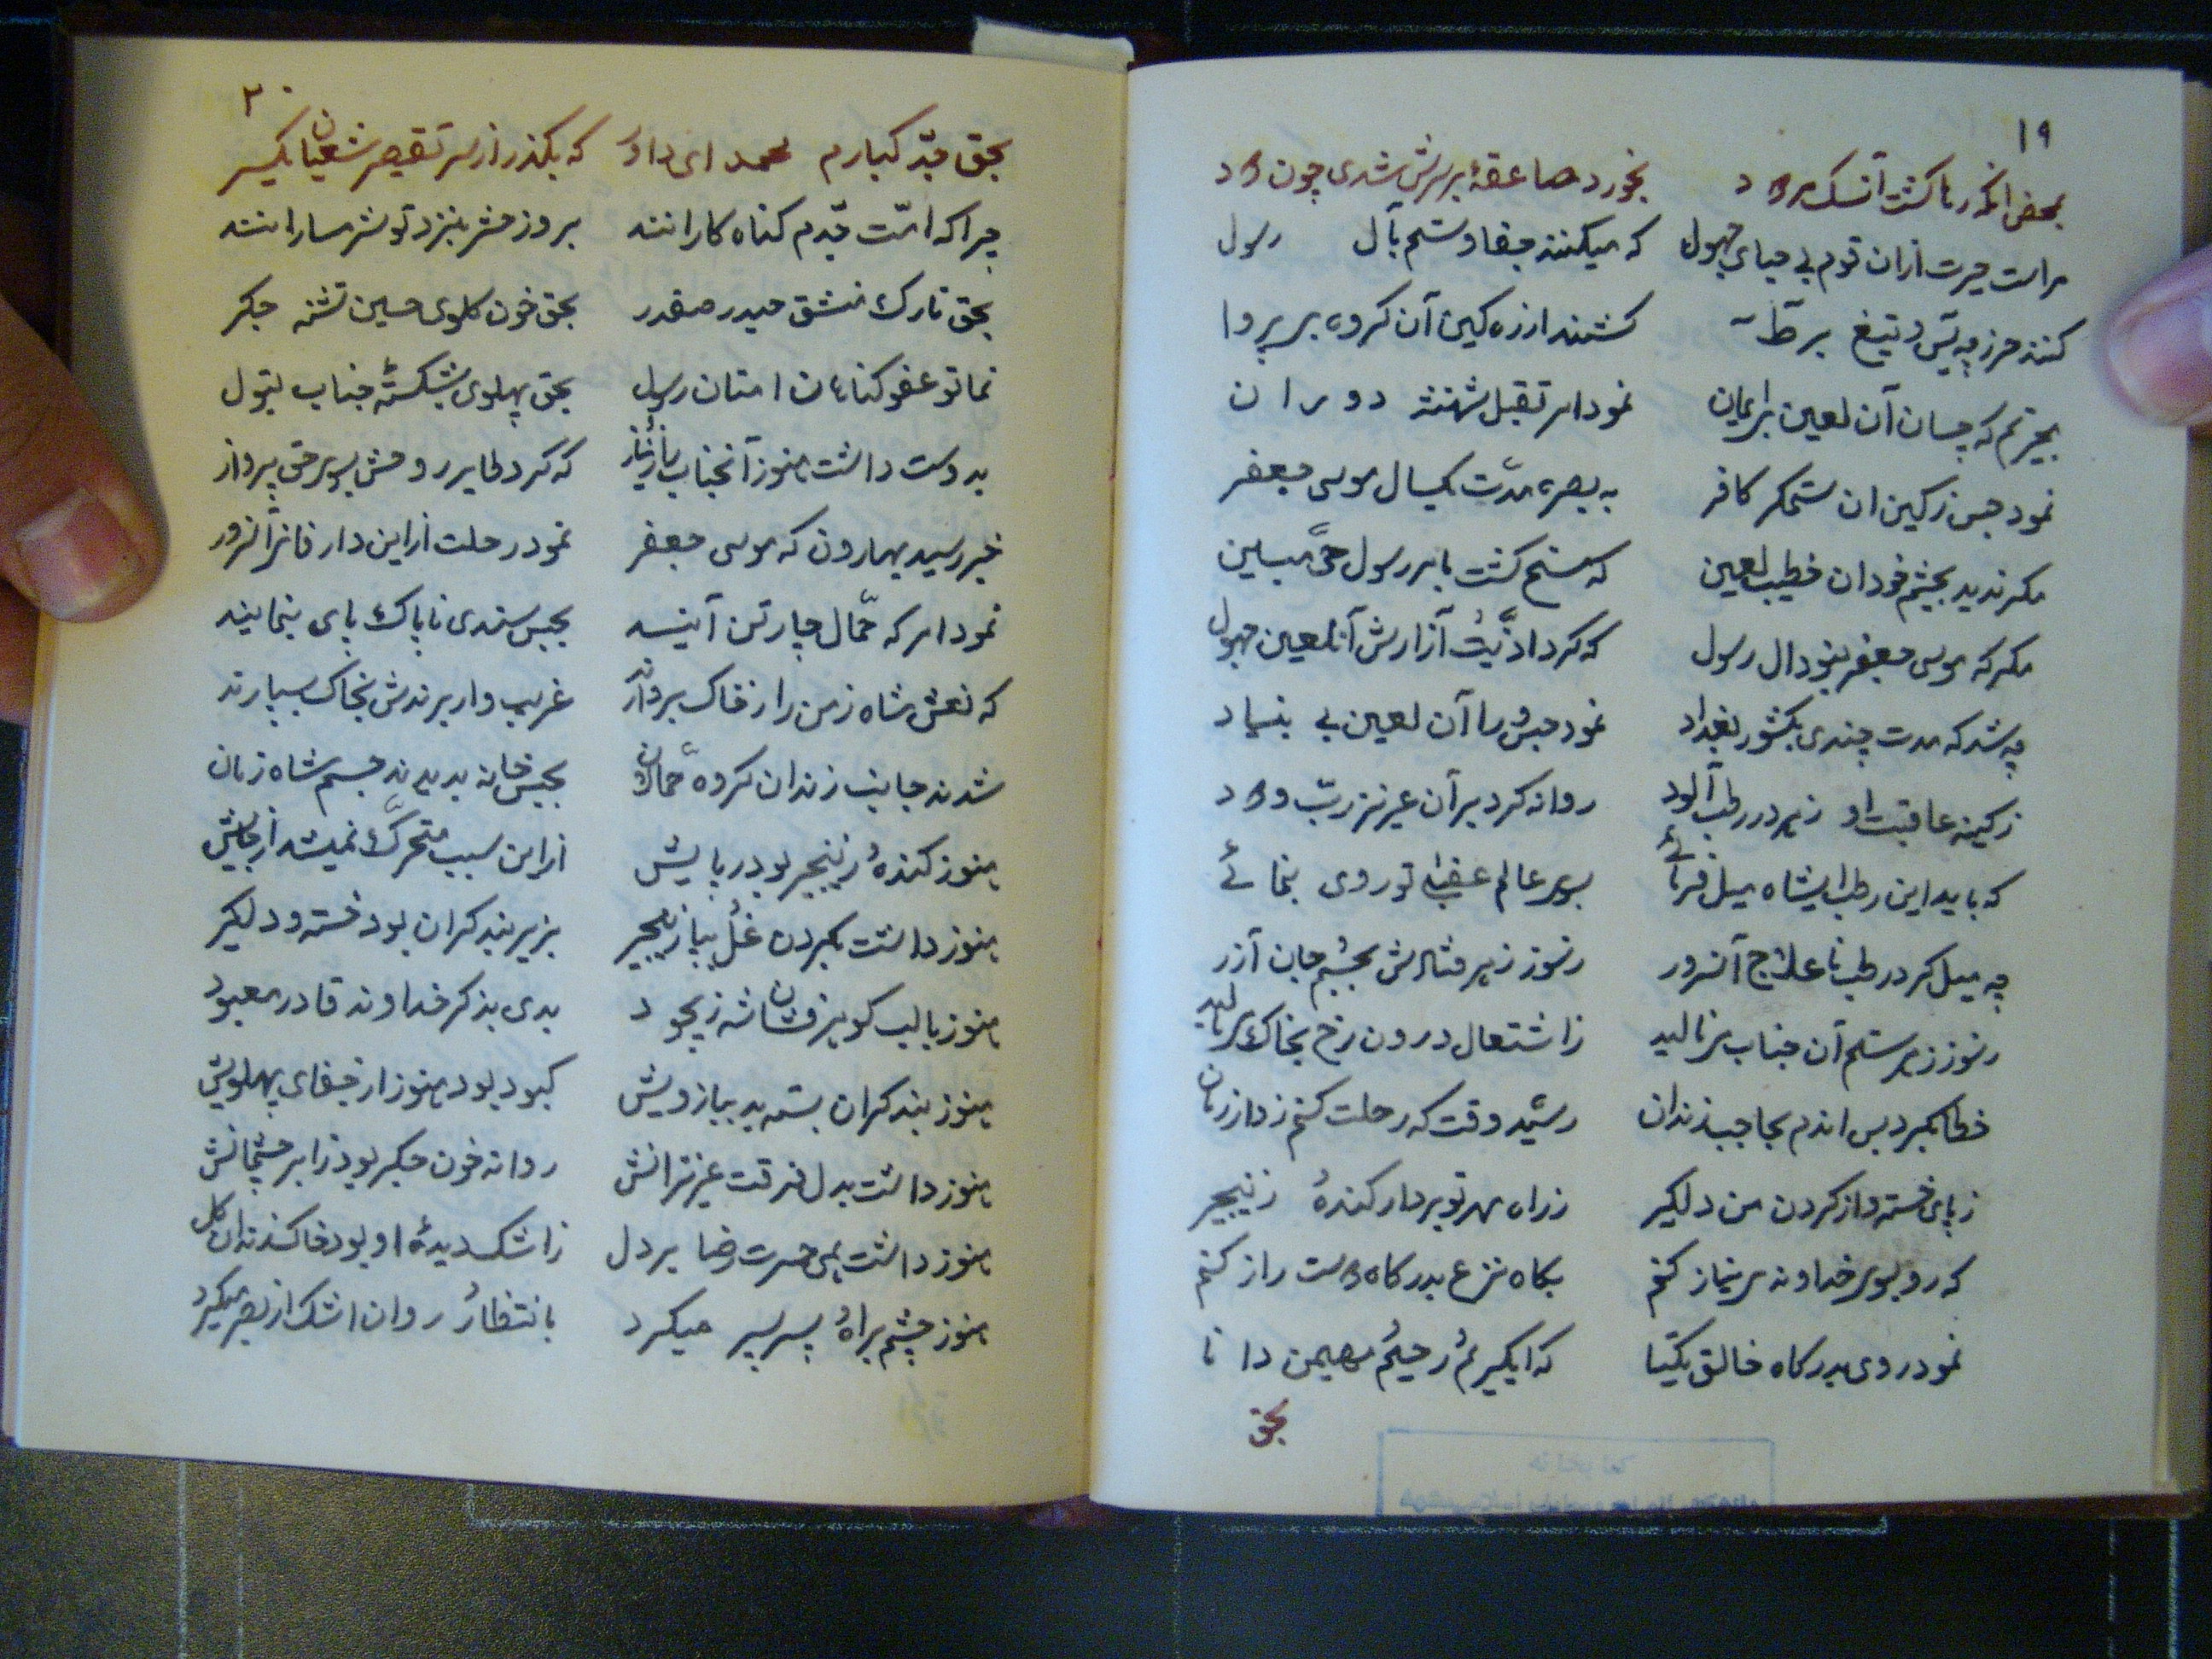 ۱۹
بمحض آنکه رها گشت آن سگ مردود بخورد صاعقهٔ بر سرش شدی چون دود
مراست حیرت ازان قوم بی حیای جهول که میکنند جفا و ستم بآل رسول
کنند حرز چه یس و تیغ بر طٓه کشند از ره کین آن کروه بی پروا
بحیرتم که چسان آن لعین بی ایمان نمود امر تقبل شهنشه دوران
نمود حبس ز کین ان ستمکر کافر به بصره مدت یکسال موسی جعفر
مکر ندید بچشم خود ان خطیب لعین که مسخ کشت بامر رسول حق مبین
مکر که موسی جعفر نبود ال رسول که کرد اذیّت آزارش آنلعین جهول
چه شد که مدت چندی بکشور بغداد نمود حبس ورا آن لعین بی بنیاد
ز کینه عاقبت او زهر در رطب آلود روانه کرد بر آن عزیز ربّ ودود
که باید این رطب ایشاه میل فرمائی بسوی عالم عقبی تو روی بنمائے
چه میل کرد رطب ناعلاج آنسرور رسوز زهر فتادش بجسم جان آذر
رسوز زهر ستم آن جناب می نالید ز اشتعال درون رخ بخاک می مالید
خطاب کرد پس اندم بحاجب زندان رسید وقت که رحلت کنم ز دار زمان
ز پای خسته و از کردن من دلکیر ز راه مهر تو بردار کندهٔ زنجیر
که رو بسوی خداوند بی نیاز کنم بکاه نزع بدرکاه دست راز کنم
نمود روی بدرکاه خالق یکتا که ایکریم رحیم مهیمن دانا
بحق
۲۰
بحق جدّ کبارم محمد ای داور که بکذر از سر تقصیر شیعیان یکسر
چرا که امّت جدّم کناه کارانند بروز حشر بنزد تو شرمسارانند
بحق تارک منشق حیدر صفدر بحق خون کلوی حسین تشنه جکر
نما تو عفو کناهان امتان رسول بحق پهلوی بشکستهٔ جناب بتول
بدوست داشت هنوز آنجناب راز و نیاز که کرد طایر روحش بسوی حق پرواز
خبر رسید بهارون که موسی جعفر نمود رحلت از این دار فانی آنسرور
نمود امر که حمّال چار تن آیند بحبس سندی ناپاک پای بنمایند
که نعش شاه زمن را ز خاک بردارند غریب وار برندش بخاک بسپارند
شدند جانب زندان کروه حمّالان بحبس خانه بدیدند جسم شاه زمان
هنوز کندهٔ زنجیر بود در پایش از این سبب متحرّک نمیشد از جایش
هنوز داشت بکردن غل بپا زنجیر بزیر بند کران بود خسته و دلکیر
هنوز با لب کوهر فشان شه ذیجود بدی بذکر خداوند قادر معبود
هنوز بند کران بسته بد ببازویش کبود بود هنوز از جفای پهلویش
هنوز داشت بدل فرقت عزیزانش روانه خون جکر بود ز ابر چشمانش
هنوز داشت همی حسرت رضا بر دل ز اشک دیدهٔ او بود خاک زندان کل
هنوز چشم براه پسر پسر میکرد بانتظار روان اشک از بصر میکرد